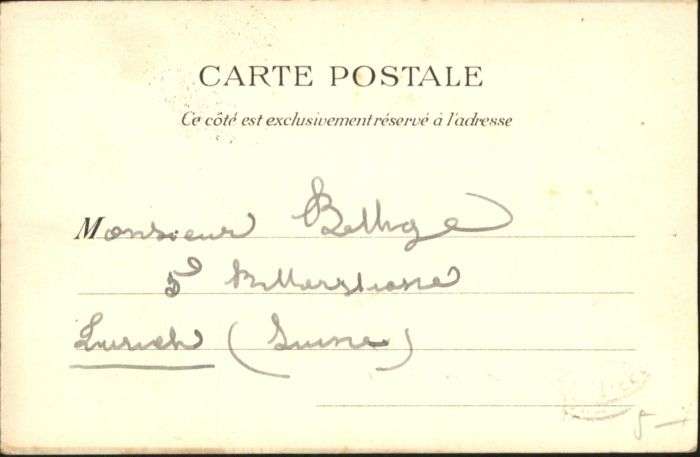 CARTE POSTALE
Ce côté est exclusivement réservé à l'adresse
Monsieur Bellige
5
Zurich (Suisse)